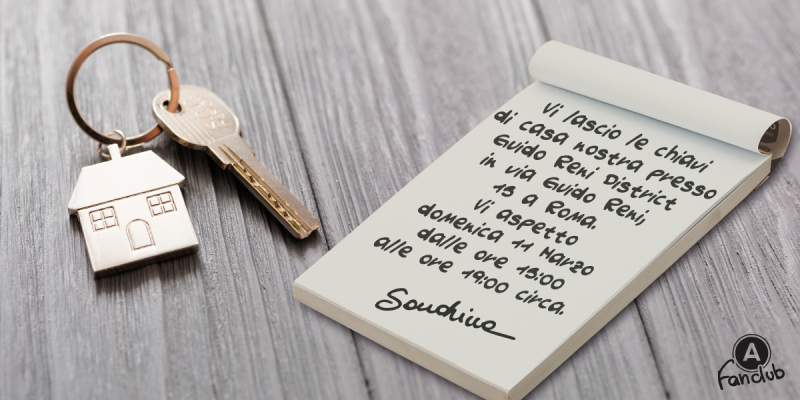 Vi lascio le chiavi
di casa nostra presso
Guido Reni District
in via Guido Reni,
Vi aspetto
domenica 11 Marzo
alle ore 19:00 circa.
Sandrine
A
fanclub